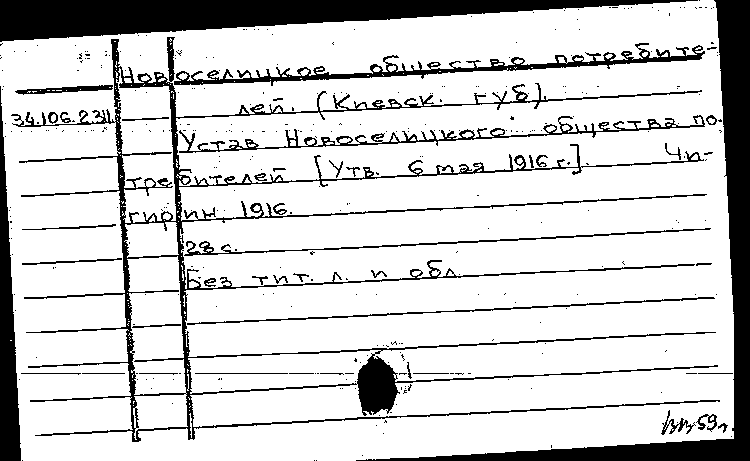 Новоселицкое общество потребите-
лей. (Киевск. губ).
34.106.2311
Устав Новоселицкого общества по-
требителей [Утв. 6 мая 1916 г.]. Чи-
гирин, 1916.
28 с.
Без тит. л. и обл.
59 г.